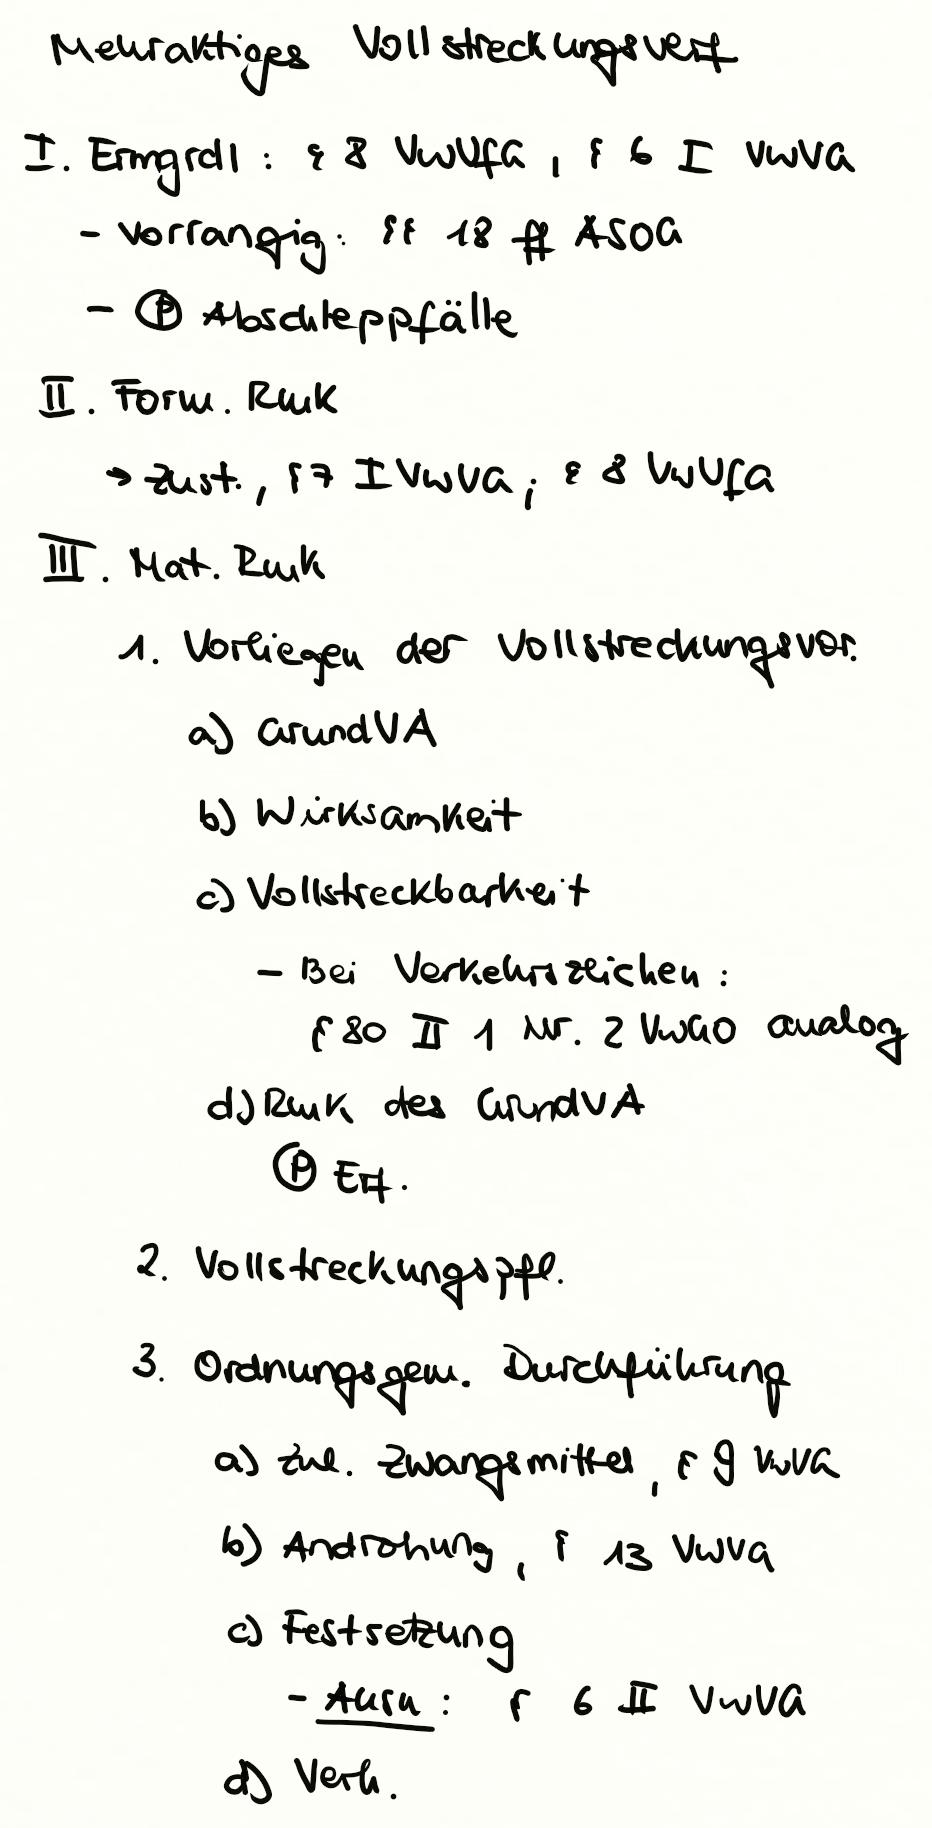 Mehraktiges Vollstreckungsverf
I. Ermgrdl : § 8 VwVfG , § 6 I VwVG
- vorrangig: §§ 18 ff ASOG
- Ⓟ Abschleppfälle
II. Form. Rmk
→ Zust., § 7 I VwVG ; § 8 VwVfG
III. Mat. Rmk
1. Vorliegen der Vollstreckungsvor.
a) GrundVA
b) Wirksamkeit
c) Vollstreckbarkeit
- Bei Verkehrszeichen :
§ 80 II 1 Nr. 2 VwGO analog
d) Rmk des GrundVA
Ⓟ Erf.
2. Vollstreckungspfl.
3. Ordnungsgem. Durchführung
a) Zul. Zwangsmittel, § 9 VwVG
b) Androhung, § 13 VwVG
c) Festsetzung
- Ausn : § 6 II VwVG
d) Verh.